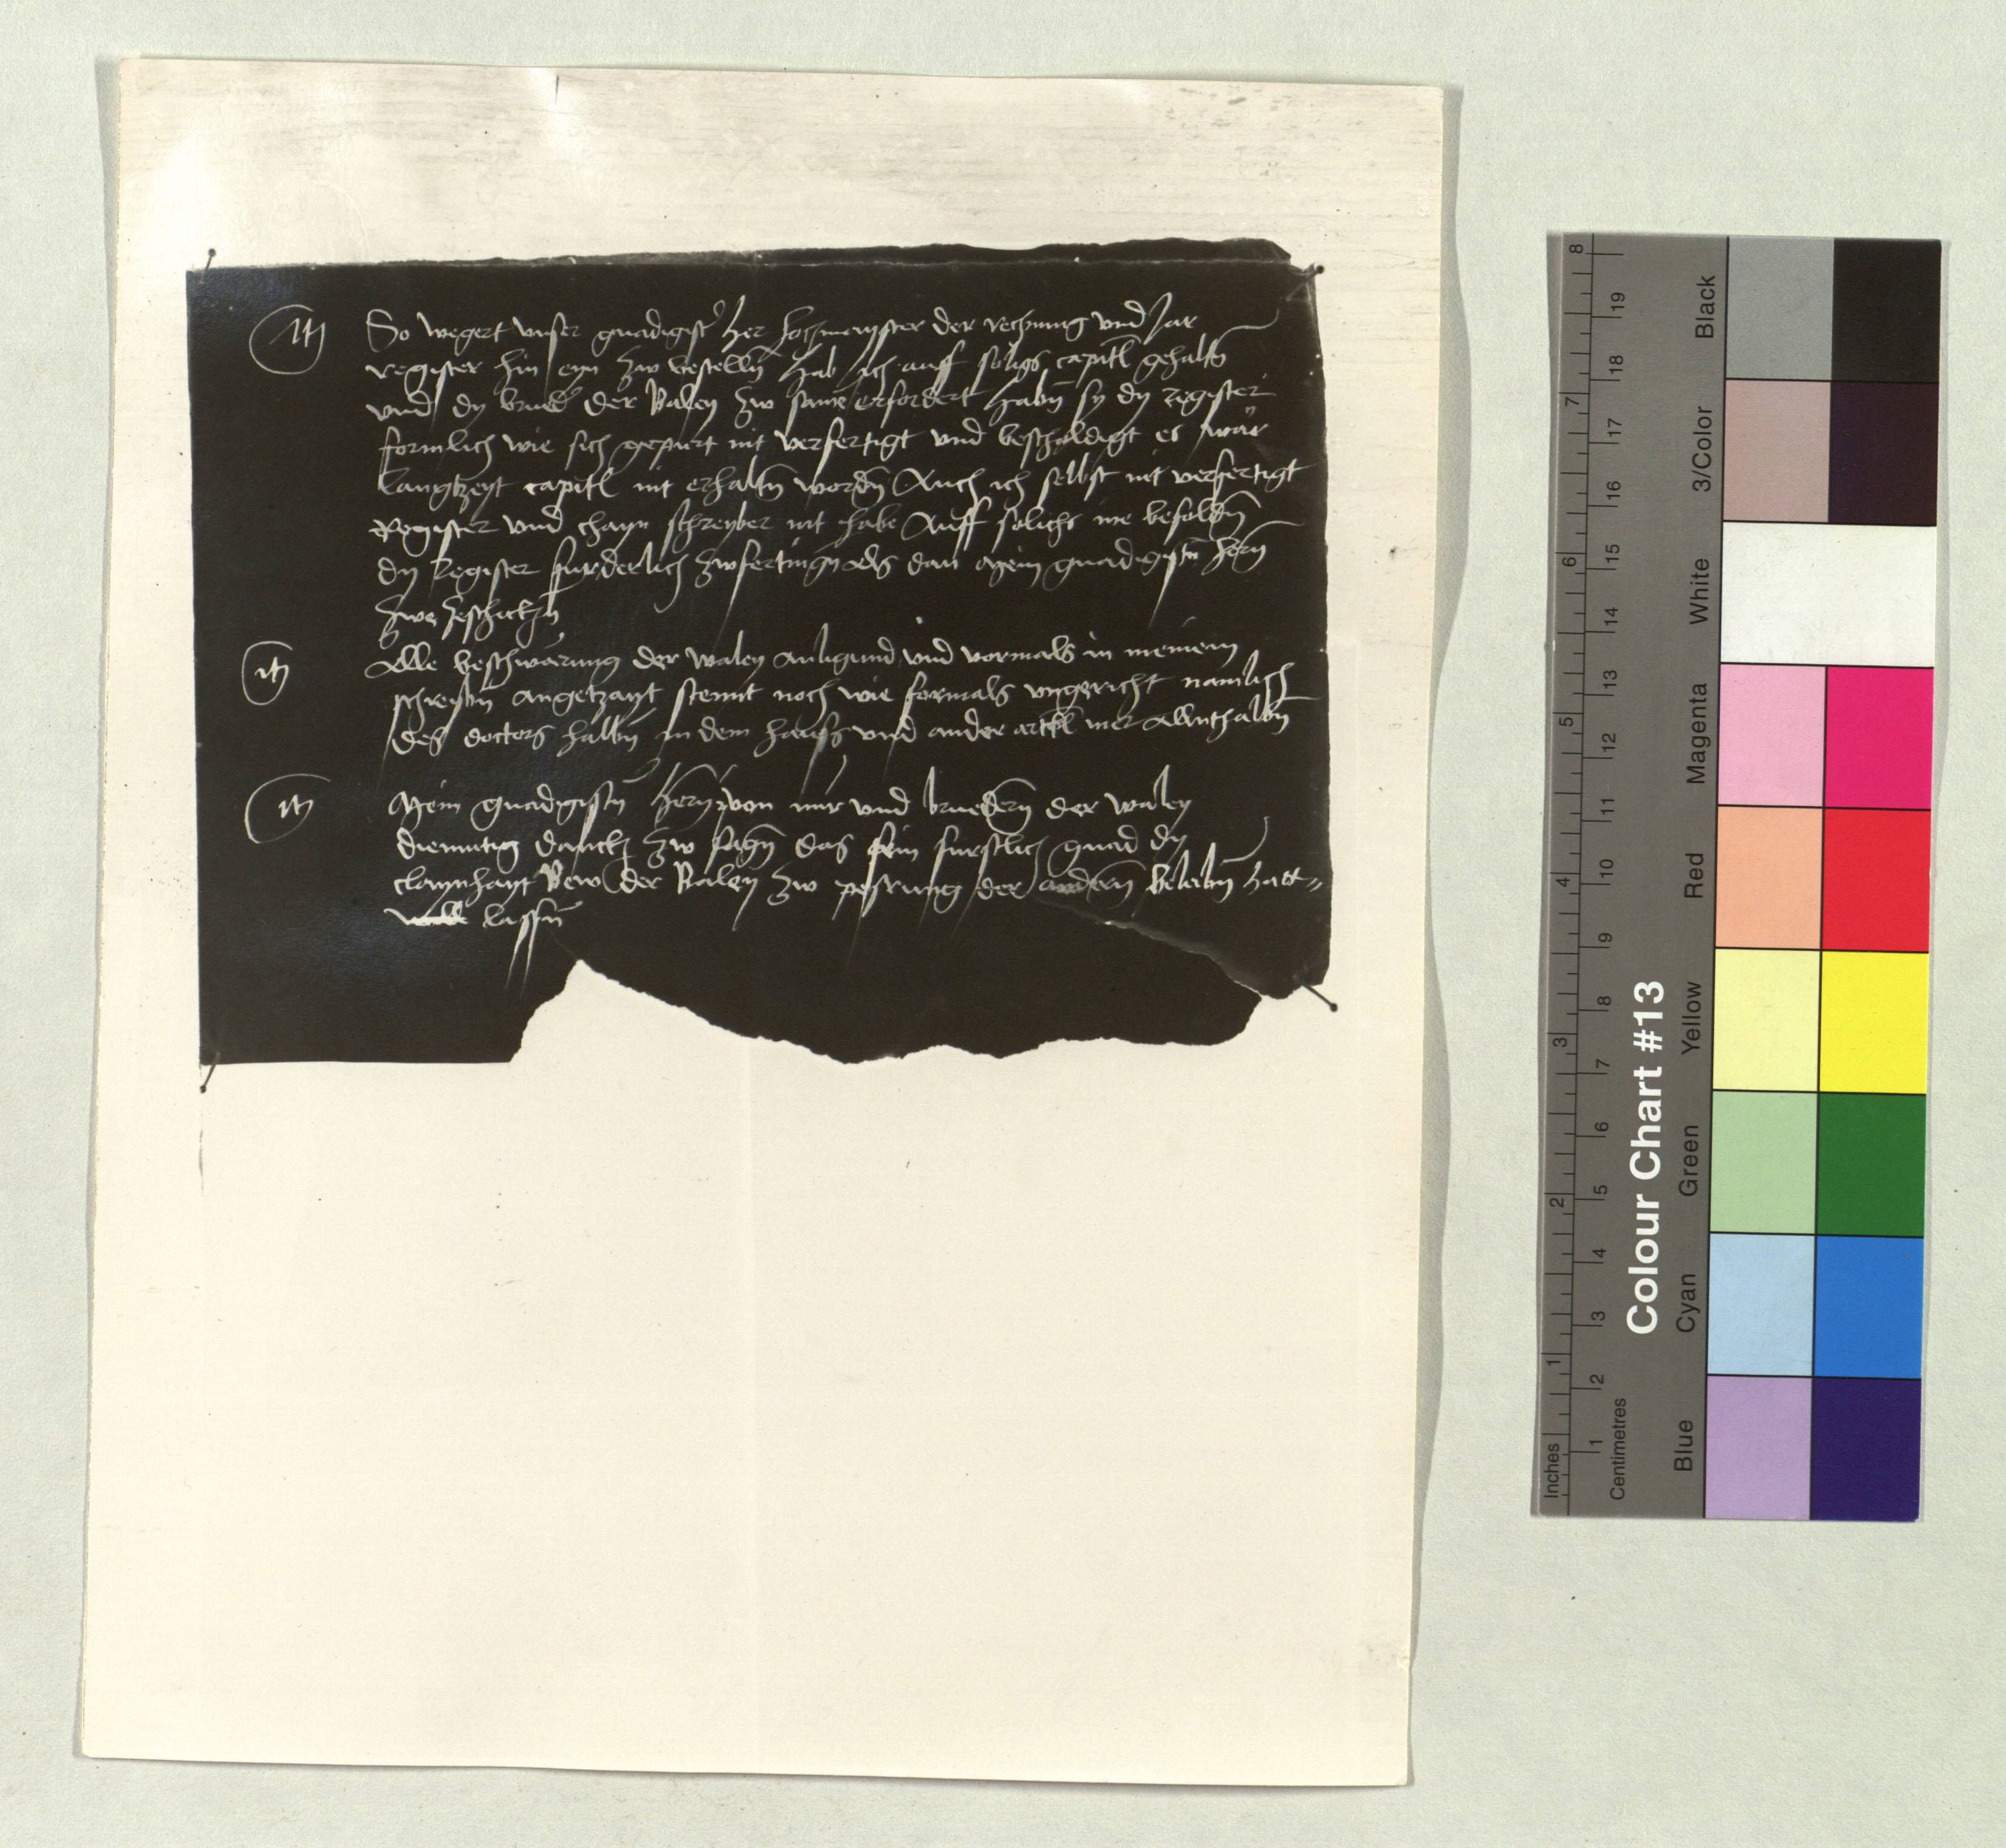 It So wegert unser gnadigist her hochmayster der rechnung und Jar
register hin ein zw bestelln hab ich auff solichs capitl gehaltn
und dy brued der Baley zw same erfordert habn sy dy register
formlich wie sich gepurt nit verfertigt und beschaldigt es wär
langtzeyt capitl nit erhaltn wordn Auch ich selbst nit verfertigt
Register und chayn schreyber nit habe Auff solichs nie befoldn
dy Register furderlich zw fertingn als dan mein gnadigistn hern
zwe
It Alle beschwärung der waley anligund und vormals in meinem
schreybn angetzaygt stennt noch wie formals ungericht namlich
des doctors halbn in dem hauss und ander artikl mer allnthalbn
It Mein gnadigistn hern von mir und bruedern der waley
diemutig danck zw sagn das sein furstlich gnad dy
claynhayt Bew der Baley zw pessrung der andern beleibn hatt
lassn
Inches
Centimetres
1 2 3 4 5 6 7 8
1 2 3 4 5 6 7 8 9 10 11 12 13 14 15 16 17 18 19
Colour Chart #13
Blue Cyan Green Yellow Red Magenta White 3/Color Black